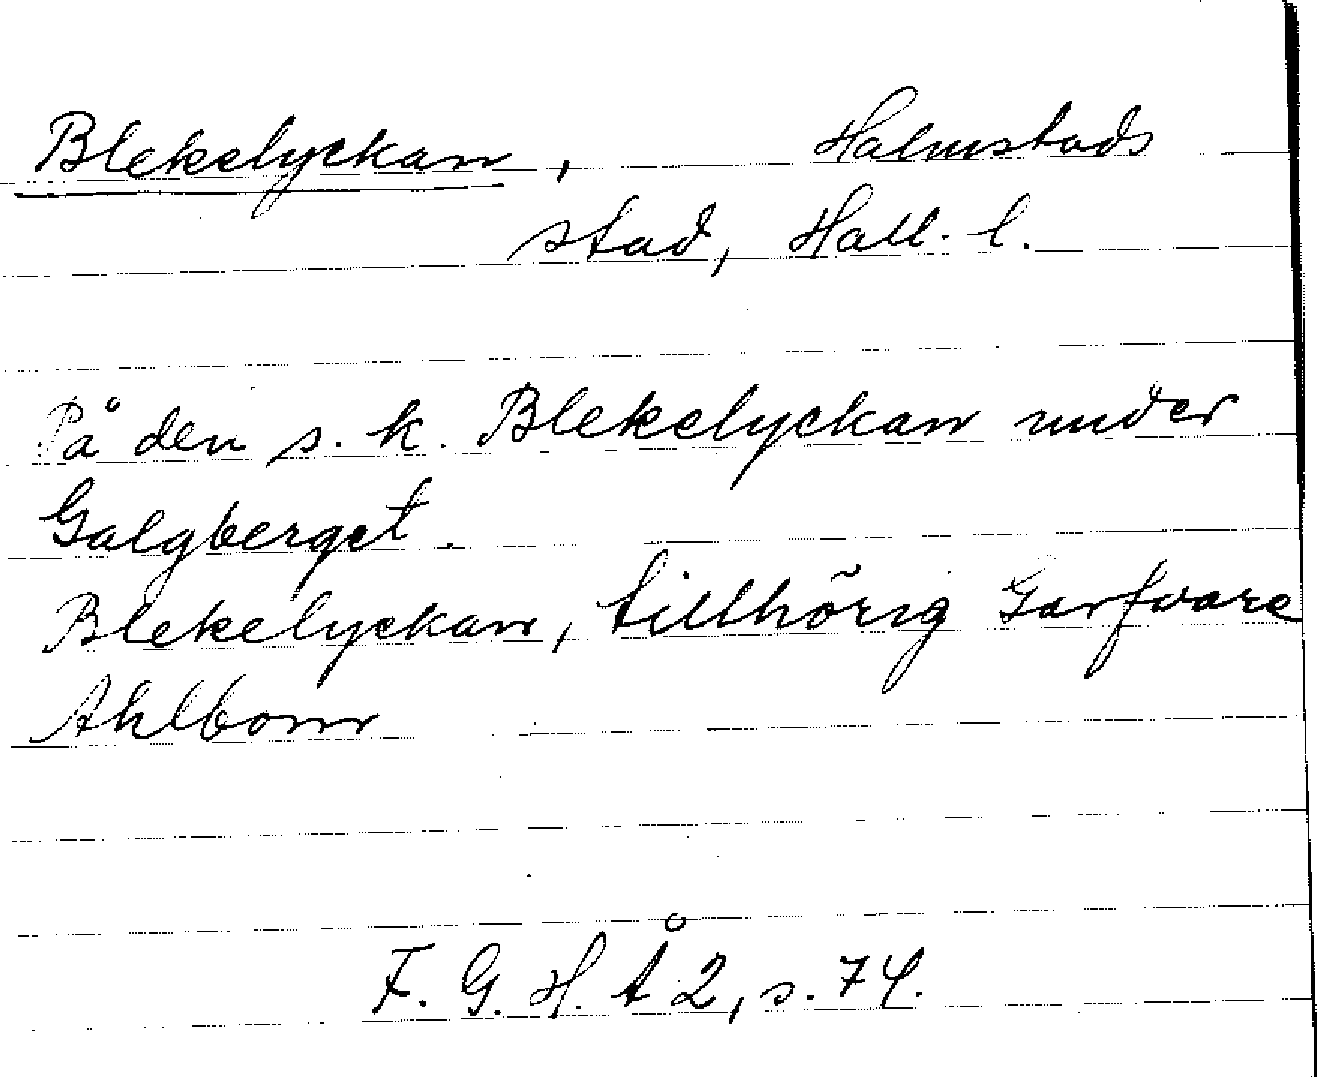 Blekelyckan, Halmstads
stad, Hall. l.
På den s. k. Blekelyckan under
Galgberget.
Blekelyckan, tillhörig Garfvare
Ahlbom
F. G. H. Å 2, s. 74.